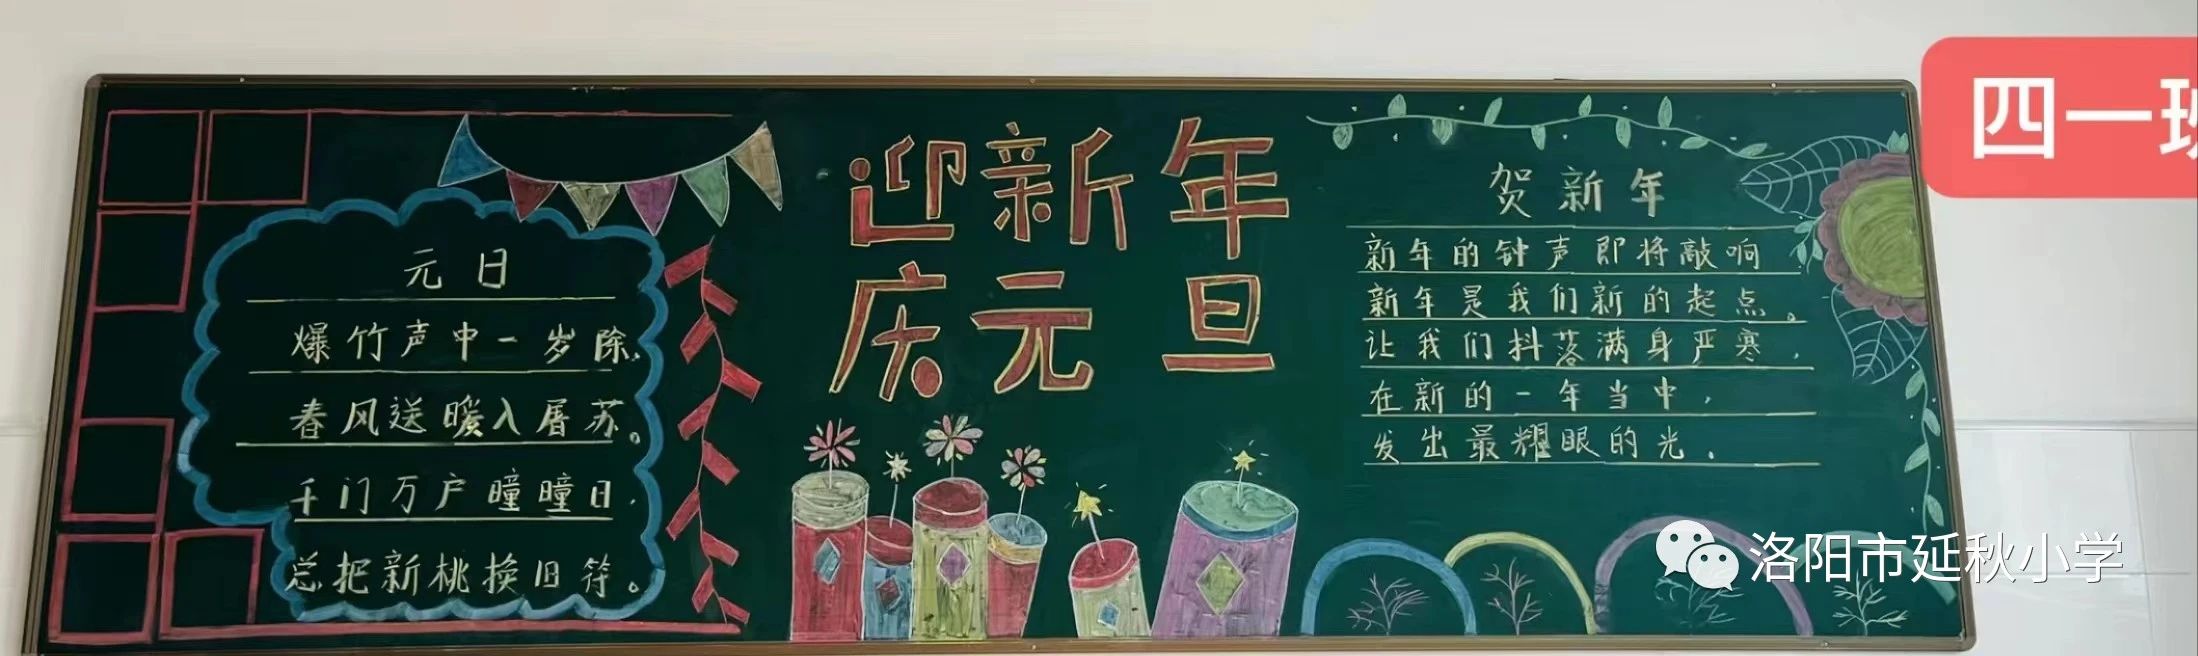 元日
爆竹声中一岁除,
春风送暖入屠苏。
千门万户曈曈日,
总把新桃换旧符。
迎新年
庆元旦
贺新年
新年的钟声即将敲响
新年是我们新的起点。
让我们抖落满身严寒,
在新的一年当中,
发出最耀眼的光.
四一班
洛阳市延秋小学